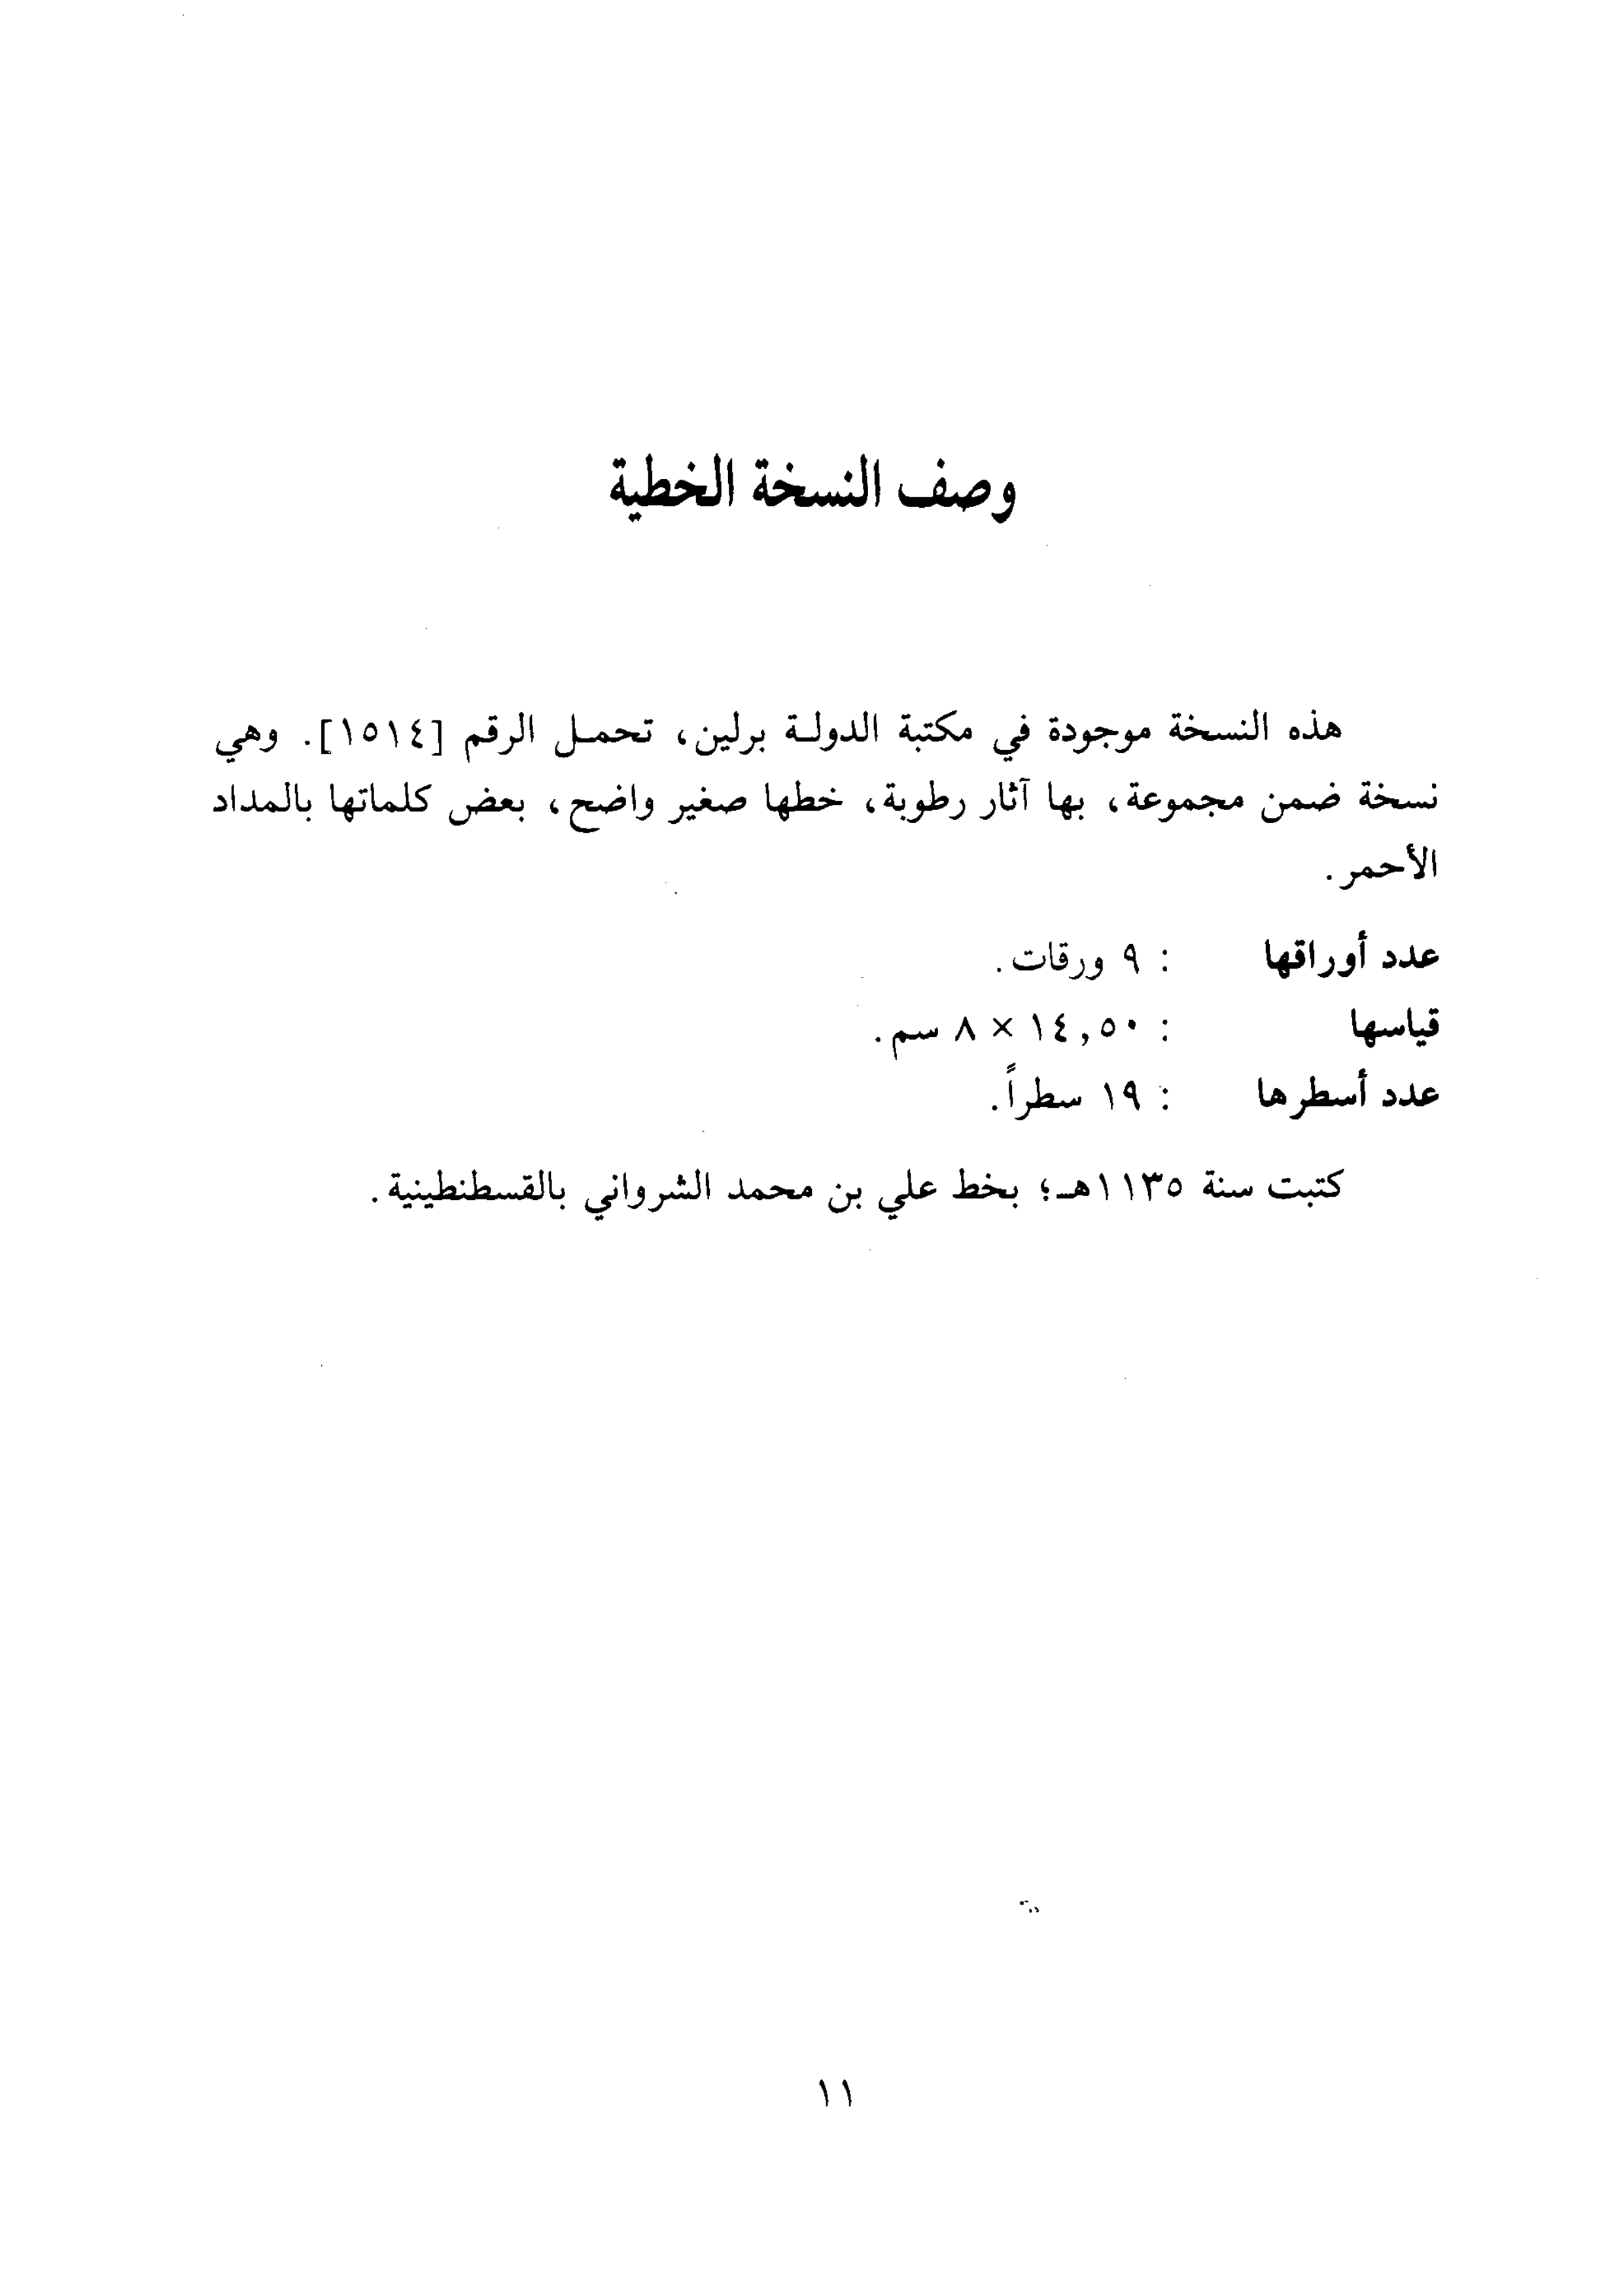 وصف النسخة الخطية
هذه النسخة موجودة في مكتبة الدولـة برلين، تحمـل الرقم [١٥١٤]. وهي
نسخة ضمن مجموعة، بها آثار رطوبة، خطها صغير واضح، بعض كلماتها بالمداد
الأحمر.
عدد أوراقها : ٩ ورقات.
قياسها : ١٤,٥٠ × ٨ سم.
عدد أسطرها : ١٩ سطراً.
كتبت سنة ١١٣٥هـ؛ بخط علي بن محمد الشرواني بالقسطنطينية.
١١